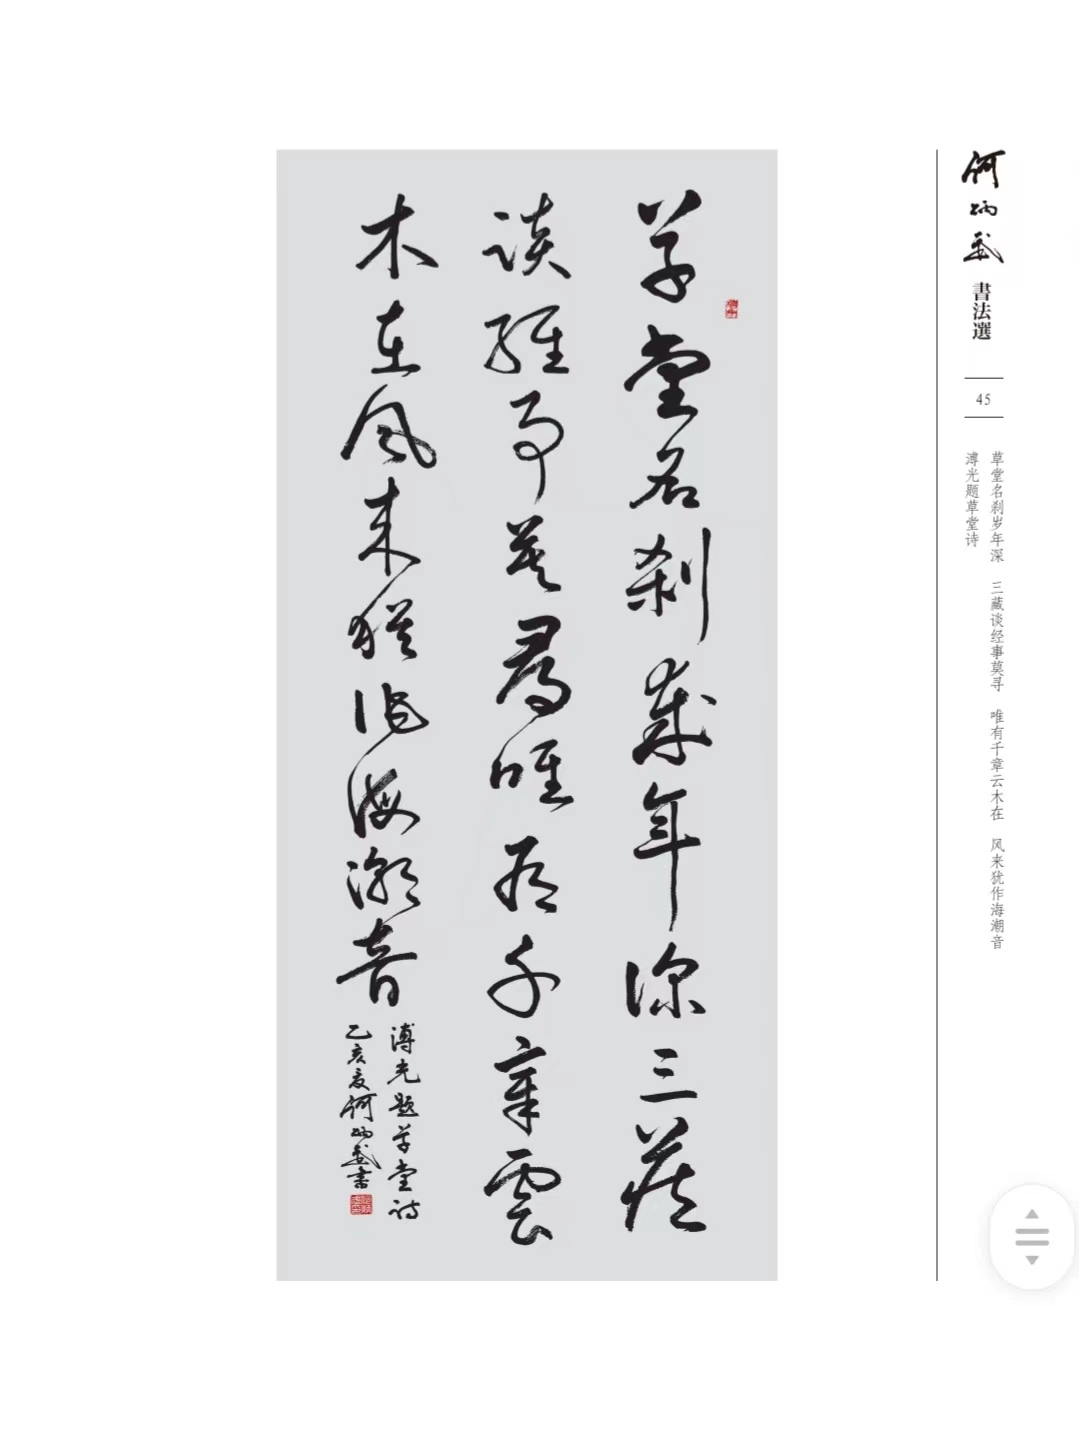 草堂名刹歲年深三藏
談經事莫尋唯有千章雲
木在風来猶作海潮音
溥光题草堂诗
乙亥夏何炳武書
何炳武
書法選
45
草堂名刹岁年深　三藏谈经事莫寻　唯有千章云木在　风来犹作海潮音
溥光题草堂诗